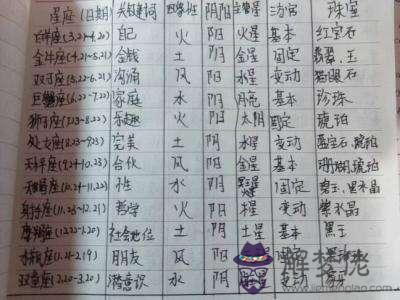 星座(日期) 关键词 阴阳 方宫 珠宝
(3.21-4.20) 自己 火 阳 火星 基本 红宝石
金牛座(4.21-5.21) 金钱 土 阴 金星 固定 翡翠,玉
双子座(5.22-6.21) 沟通 风 阳 水星 变动 猫眼石
巨蟹座(6.22-7.22) 家庭 水 阴 月亮 基本 珍珠
狮子座(7.23-8.23) 乐趣 火 阳 太阳 固定 琥珀
处女座(8.23-9.23) 完美 土 阴 水星 变动 蓝宝石,琥珀
天秤座(9.24-10.23) 合伙 风 阳 金星 基本 珊瑚,琥珀
天蝎座(10.24-11.22) 性 水 阴 固定 碧玉,黑水晶
射手座(11.23-12.21) 哲学 火 阳 木星 变动 紫水晶
摩羯座(12.22-1.20) 社会地位 土 阴 土星 基本 黑玉
水瓶座(1.21-2.19) 朋友 风 阳
双鱼座(2.20-3.20) 潜意识 水 阴